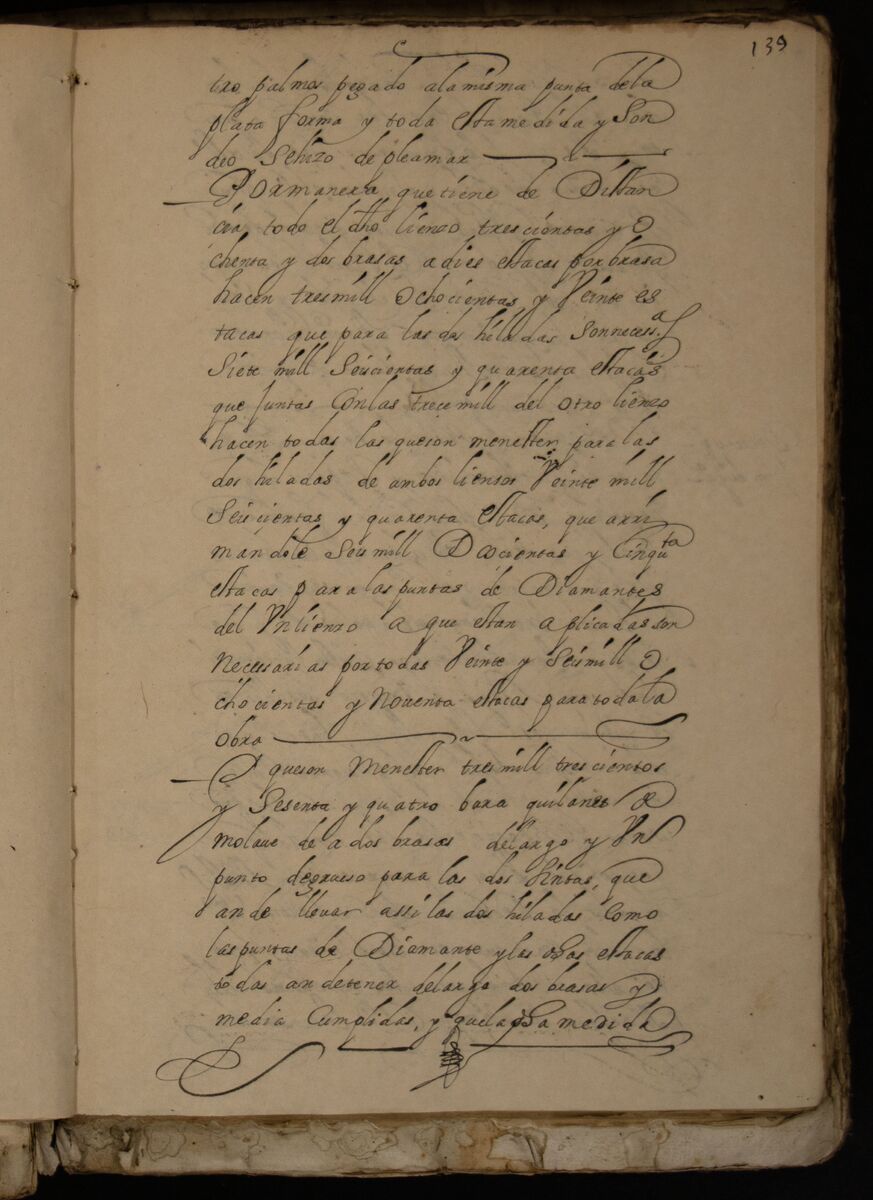 139
tro palmos pegado alamisma punta dela
plata forma y toda esta medida y Son
deo Sehizo de pleamar
Pormanera que tiene de Distan
cia todo el dho lienzo trescientas y O
chenta y dos brasas a dies estacas porbrasa
hacen tresmill Ochocientas y Veinte es
tacas que para las dos hiladas Sonnecess.as
Siete mill Seiscientas y quarenta estacas
que Juntas Conlas trece mill del otro lienzo
hacen todas las queson menester paralas
dos hiladas de ambos liensos Veinte mill
Seiscientas y quarenta estacas, que arri
mandole Seis mill Docientas y Cinqu.ta
estacas paralaspuntas de Diamantes
del Vnlienzo a que estan aplicadas son
Necessarias portodas Veinte y Seismill O
chocientas y Noventa estacas paratodala
obra
Y queson Menester tresmill trescientos
y Sesenta y quatro bara quilanes de
molaue de a dos brasas delargo y Vn
punto degrueso para las dos Sintas, que
ande lleuar assi las dos hiladas Como
laspuntas de Diamante ylas dhas estacas
todas andetener delargo dos brasas y
media Cumplidas, y quela dha medida